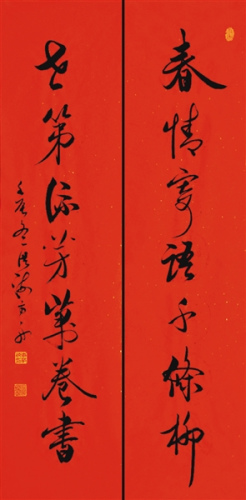 春情寄語千條柳
世第流芳萬卷書